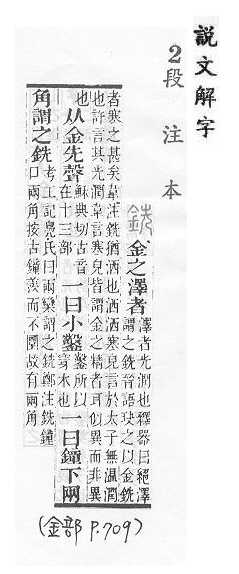 說文解字
2段注本
銑 金之澤者 澤者光潤也釋器曰絕澤
謂之銑晉語玦之以金銑
者寒之甚矣韋注銑猶洒也洒洒寒皃言於太子無溫潤
也許言其光潤韋言寒皃皆謂金之精者耳似異而非異
也 从金先聲 穌典切古音在十三部 一曰小鑿 鑿所以穿木也 一曰鐘下兩
角謂之銑 考工記鳧氏曰兩欒謂之銑鄭注銑鐘
口兩角按古鐘羨而不圜故有兩角
(金部 P.709)